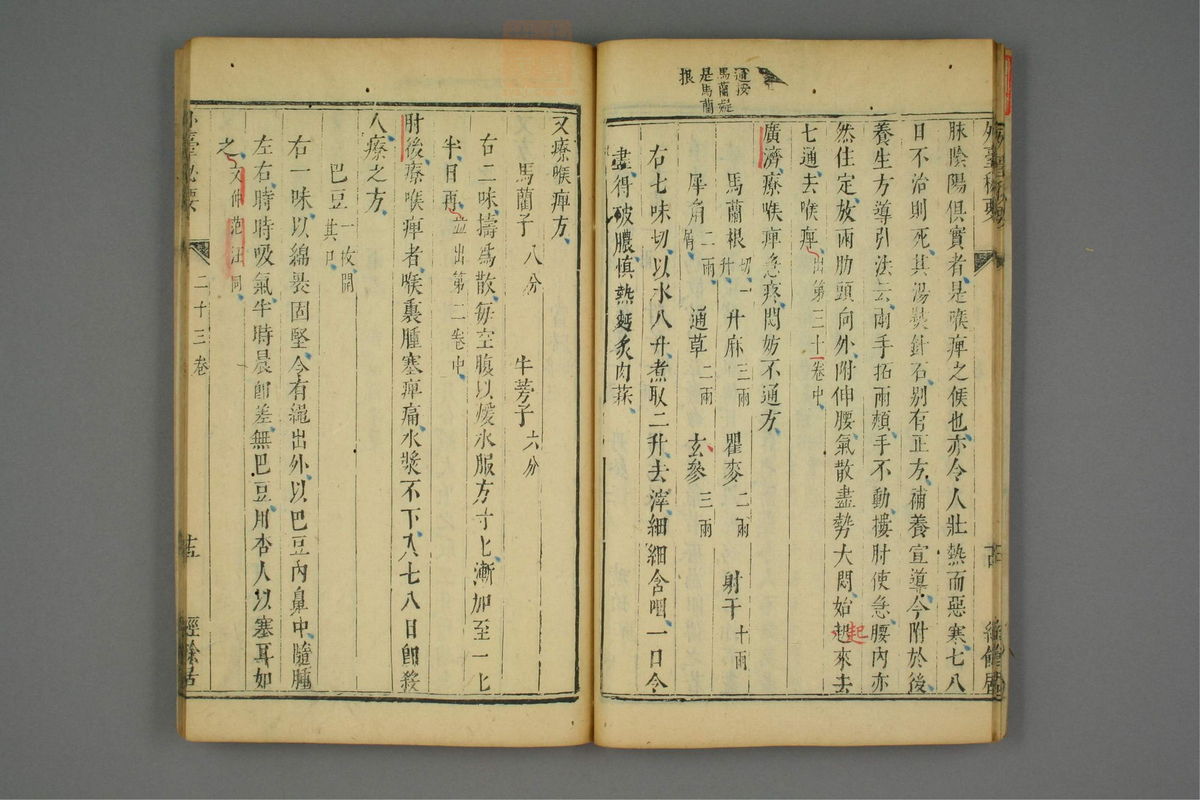 通按
馬蘭疑
是馬藺
根
脉陰陽俱實者是喉痺之候也亦令人壯熱而惡寒七八
日不治則死其湯熨針石别有正方補養宣導今附於後
養生方導引法云兩手拓兩頰手不動摟肘使急腰內亦
然住定放兩肋頭向外附伸腰氣散盡勢大悶始起來去
起
七通去喉痺出第三十卷中
廣濟療喉痺急疼悶妨不通方
馬蘭根切一升 升麻三兩 瞿麥二兩 射干十兩
犀角二兩屑 通草二兩 玄參三兩
右七味切以水八升煮取二升去滓細細含咽一口令
盡得破膿慎熱麪炙肉蒜
又療喉痺方
馬藺子八分 牛蒡子六分
右二味擣為散每空腹以煖水服方寸匕漸加至一匕
半日再並出第二卷中
肘後療喉痺者喉裏腫塞痺痛水漿不下入七八日即殺
人療之方
巴豆一枚開其口
右一味以綿褁固堅令有繩出外以巴豆內鼻中隨腫
左右時時吸氣半時晨即差無巴豆用杏人以塞耳如
之又仲范汪同
二十三卷
經餘居